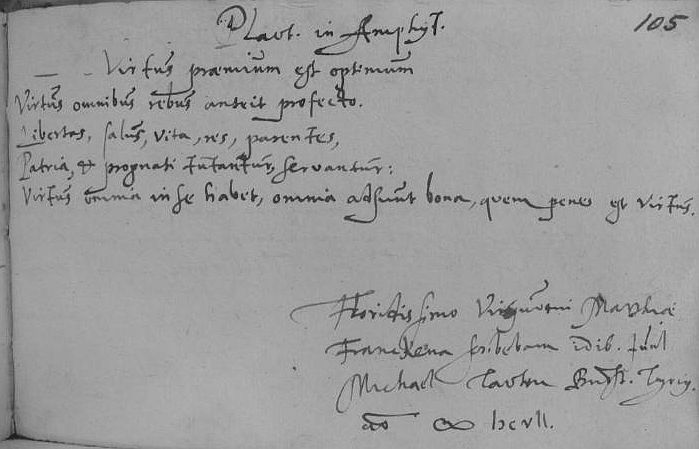 Plaut. in Amphyt. 105
Virtus praemium est optimum
Virtus omnibus rebus anteit profecto.
Libertas, salus, vita, res, parentes,
Patria, et prognati tutantur, servantur:
Virtus omnia in se habet, omnia adsunt bona, quem penes est virtus.
Floritissimo
scribebam idib. Iunl
Michael
aō